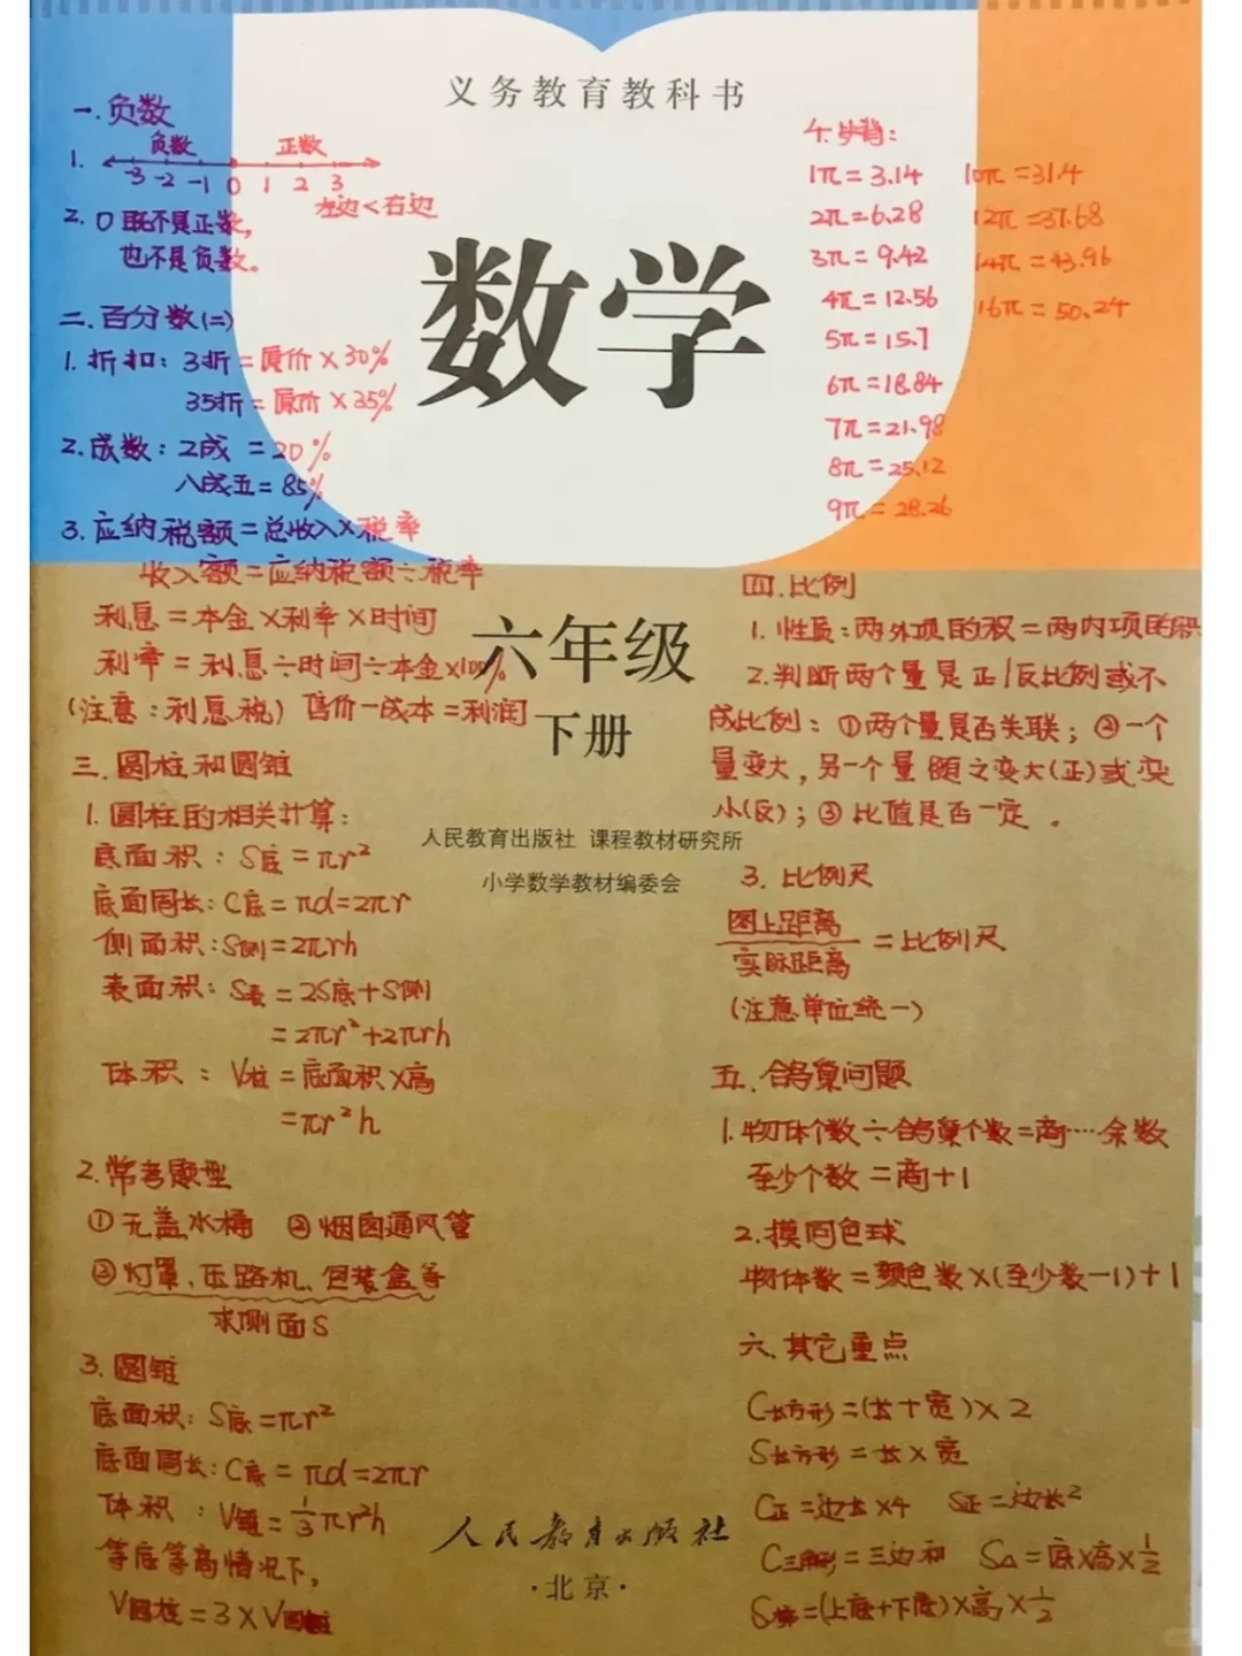 义务教育教科书
数学
六年级
下册
人民教育出版社 课程教材研究所
小学数学教材编委会
人民教育出版社
·北京·
一.负数
负数 正数
1. -3 -2 -1 0 1 2 3
左边<右边
2. 0既不是正数,
也不是负数。
二.百分数(二)
1.折扣: 3折=原价×30%
35折=原价×35%
2.成数: 2成 =20%
八成五=85%
3.应纳税额=总收入×税率
收入额=应纳税额÷税率
利息=本金×利率×时间
利率=利息÷时间÷本金×100%
(注意:利息税) 售价-成本=利润
三.圆柱和圆锥
1.圆柱的相关计算:
底面积: S底=πr²
底面周长: C底=πd=2πr
侧面积: S侧=2πrh
表面积: S表=2S底+S侧
=2πr²+2πrh
体积: V柱=底面积×高
=πr²h
2.常考题型
①无盖水桶 ②烟囱通风管
③灯罩、压路机、包装盒等
求侧面S
3.圆锥
底面积: S底=πr²
底面周长: C底=πd=2πr
体积: V锥=1/3πr²h
等底等高情况下,
V圆柱=3×V圆锥
4.必背:
1π=3.14 10π=31.4
2π=6.28 12π=37.68
3π=9.42 14π=43.96
4π=12.56 16π=50.24
5π=15.7
6π=18.84
7π=21.98
8π=25.12
9π=28.26
四.比例
1.性质:两外项的积=两内项的积
2.判断两个量是正/反比例或不
成比例: ①两个量是否关联; ②一个
量变大,另一个量随之变大(正)或变
小(反); ③比值是否一定.
3. 比例尺
图上距离/实际距离=比例尺
(注意单位统一)
五.鸽巢问题
1.物体个数÷鸽巢个数=商…余数
至少个数=商+1
2.摸同色球
物体数=颜色数×(至少数-1)+1
六.其它重点
C长方形=(长+宽)×2
S长方形=长×宽
C正=边长×4 S正=边长²
C三角形=三边和 S△=底×高×1/2
S梯=(上底+下底)×高×1/2